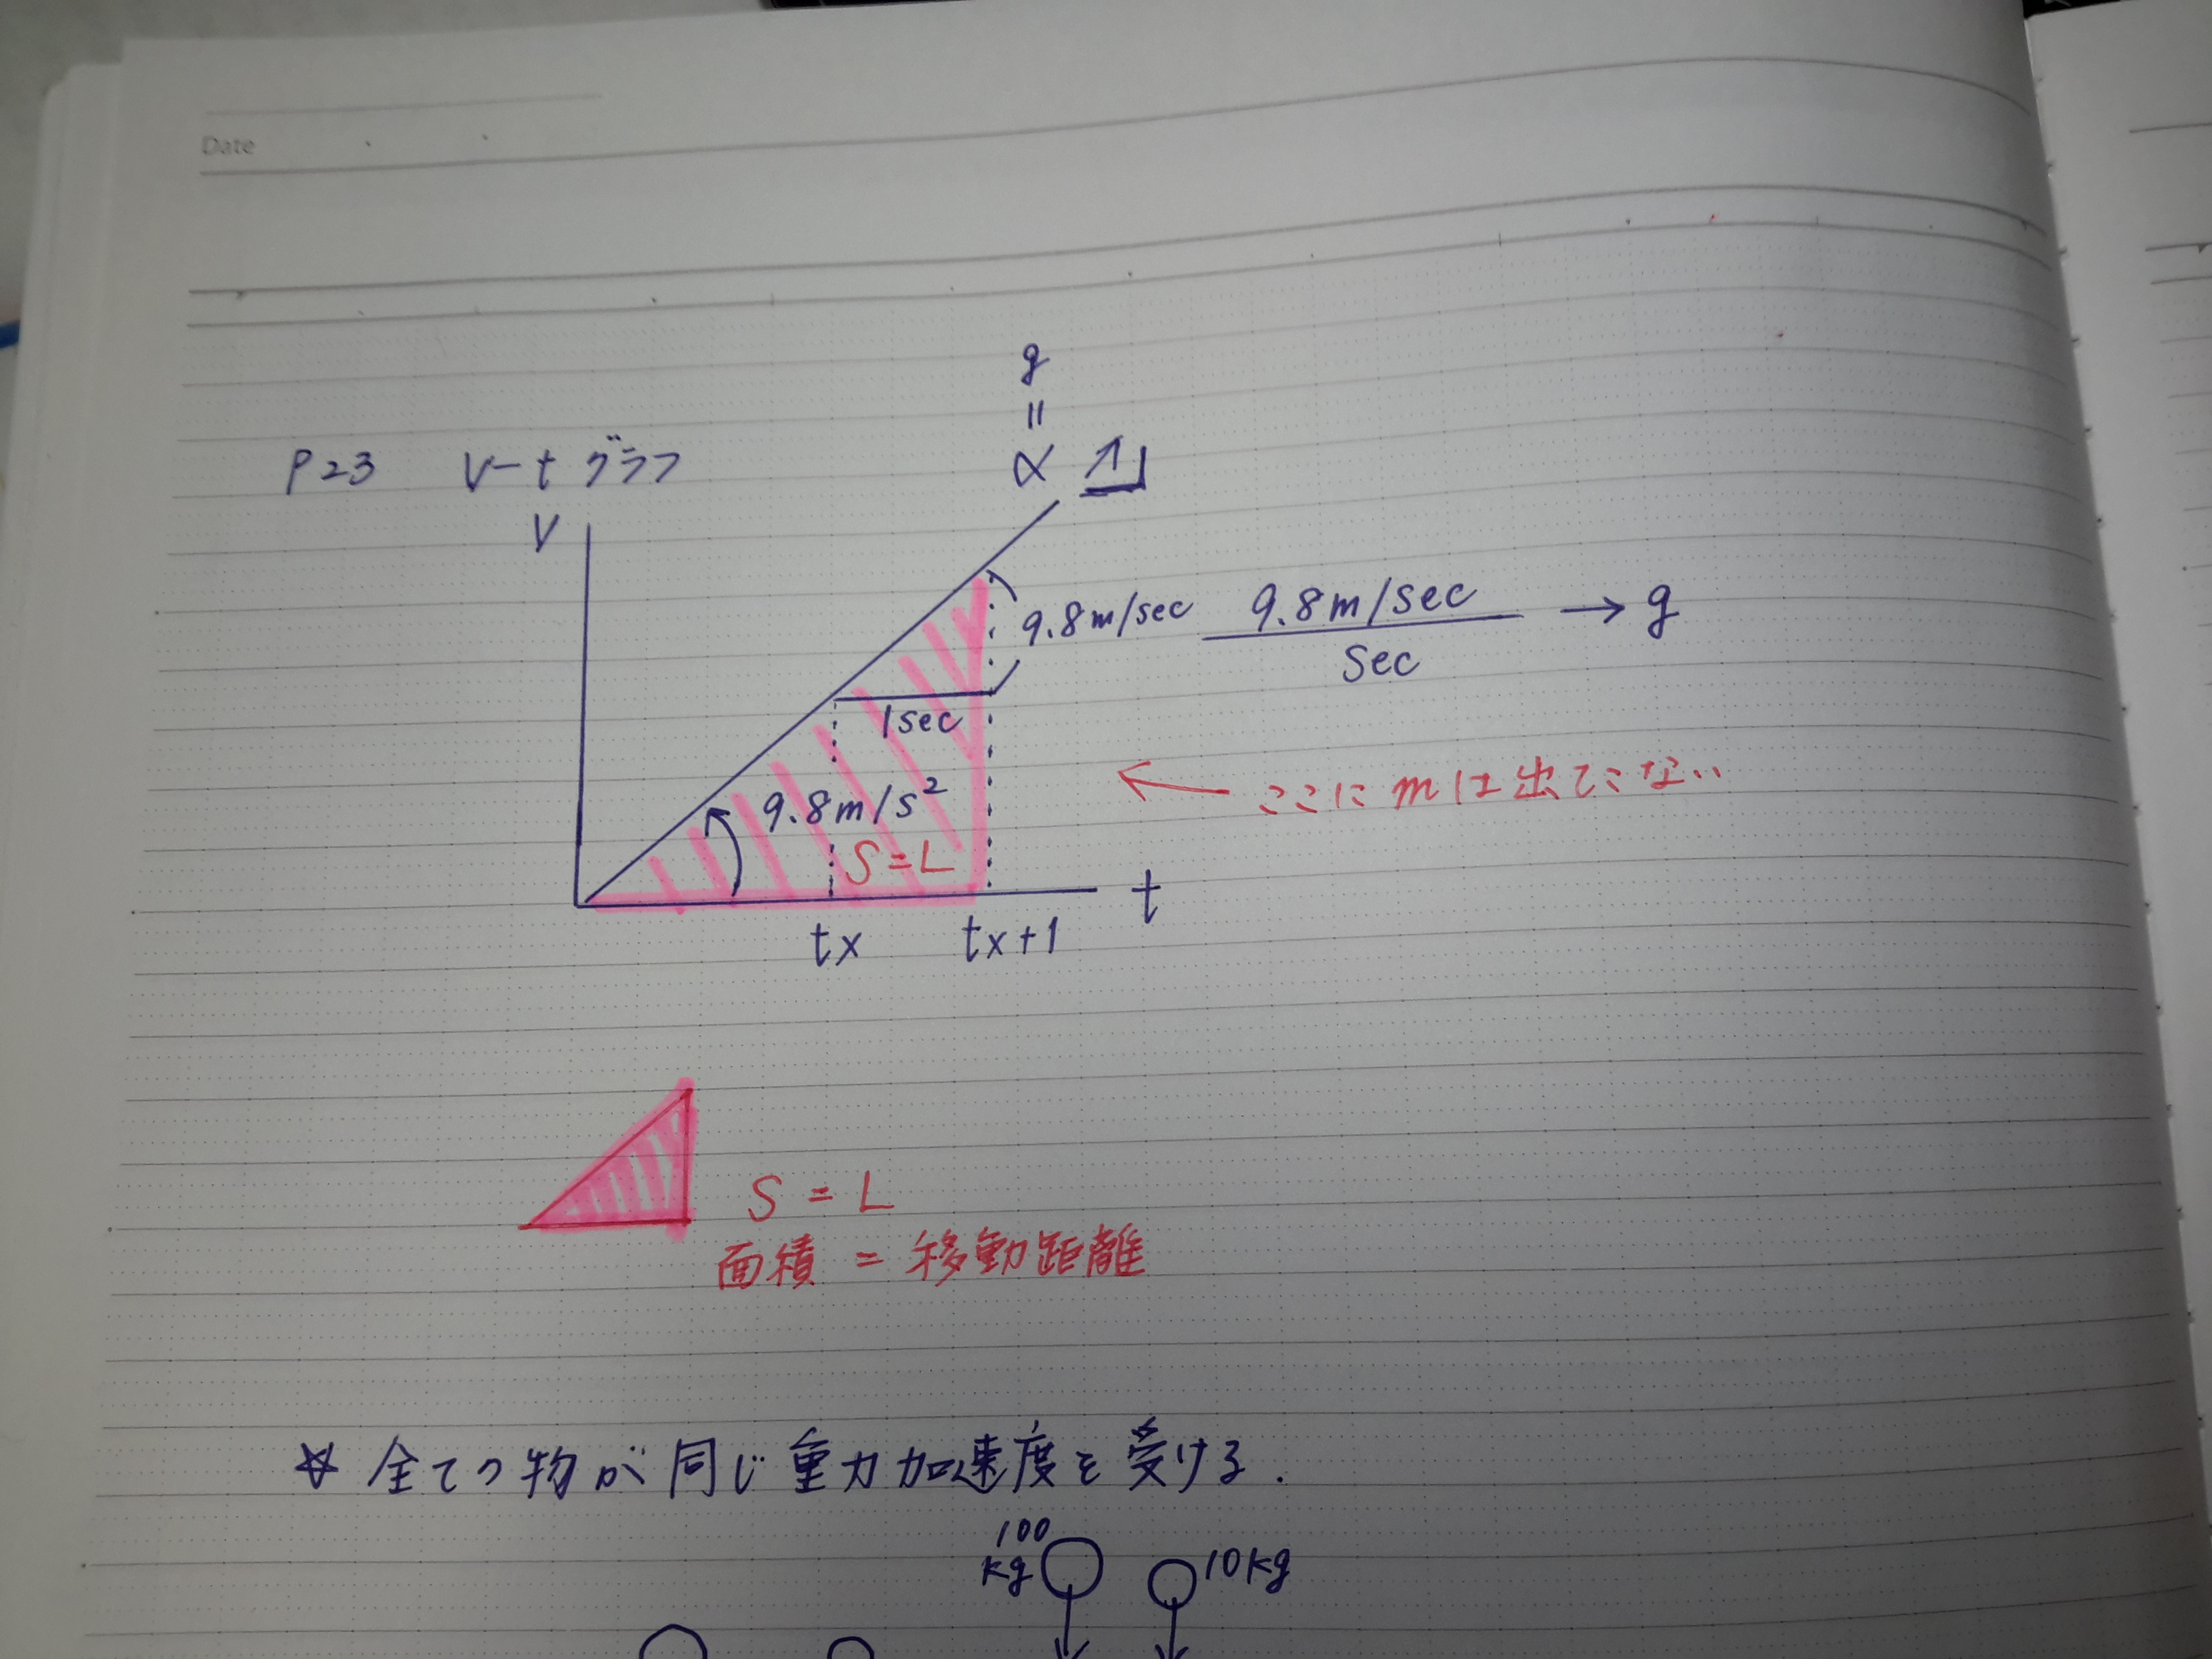 Date
g
=
P23 V-t グラフ
α
V
9.8m/sec
9.8m/sec
sec
→ g
1sec
9.8m/s²
S=L
← ここに mは出てこない
t
tx
tx+1
S = L
面積 = 移動距離
☆ 全ての物が同じ重力加速度を受ける.
100
kg
10kg